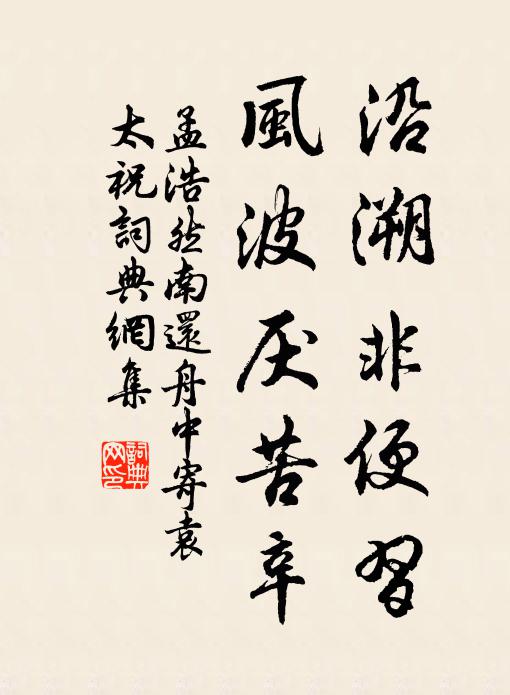 沿溯非便習
風波厌苦辛
孟浩然南還舟中寄袁
太祝詞典網集
詞典网印